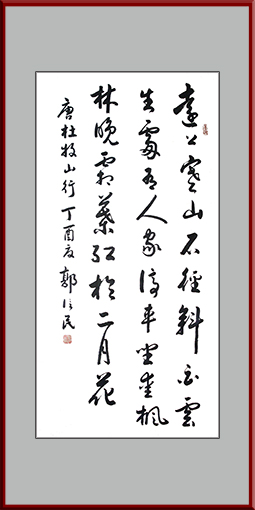 遠上寒山石徑斜白雲
生處有人家停車坐愛楓
林晚霜葉紅於二月花
唐杜牧山行丁酉夏郭信民